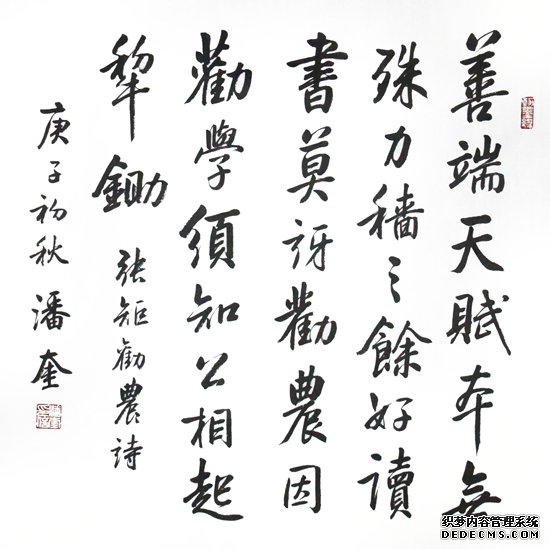 善端天賦本無
殊力穡之餘好讀
書莫訝勸農因
勸學須知公相起
犂鋤
張矩勸農詩
庚子初秋潘奎
织梦内容管理系统
DEDECMS.COM